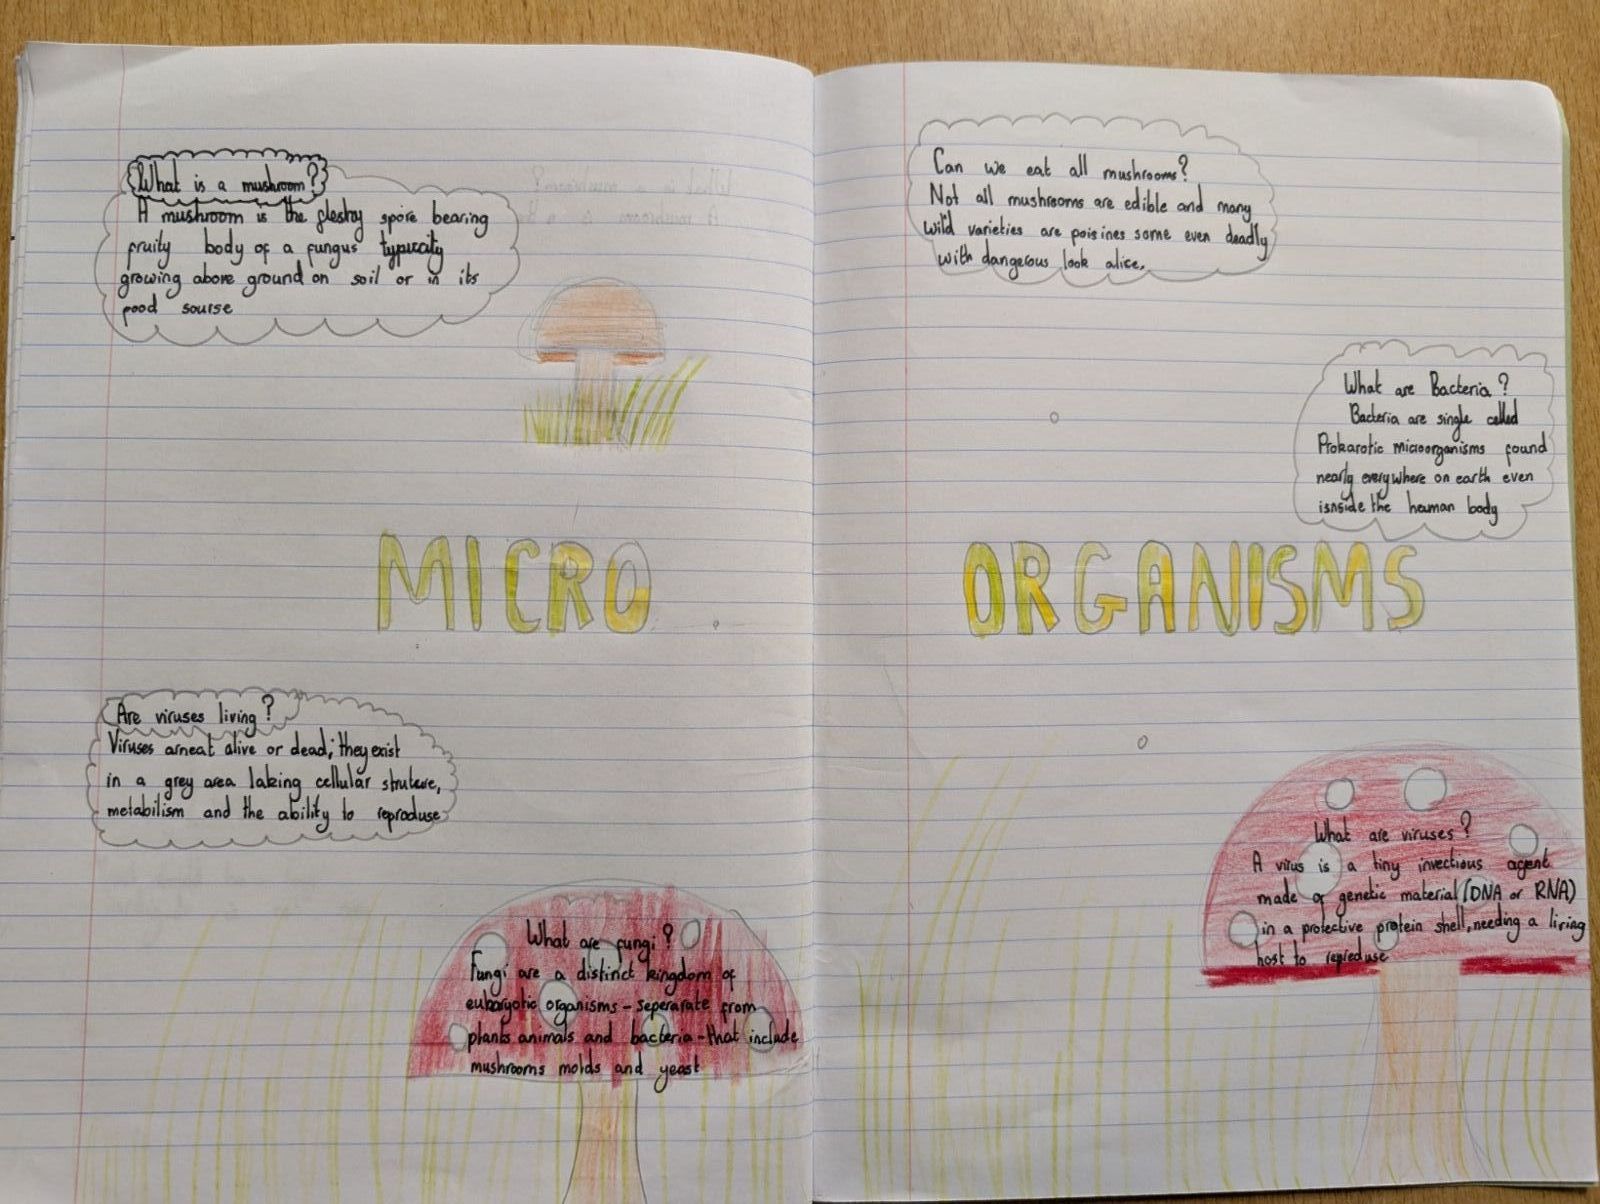 What is a mushroom?
A mushroom is the fleshy spore bearing
fruity body of a fungus typiccity
growing above ground on soil or in its
food sourse
Can we eat all mushrooms?
Not all mushrooms are edible and many
wild varieties are poisines some even deadly
with dangerous look alice.
What are Bacteria?
Bacteria are single celled
Prokarotic microorganisms found
nearly everywhere on earth even
isnside the heuman body
MICRO ORGANISMS
Are viruses living?
Viruses arneat alive or dead; they exist
in a grey area laking cellular struteure,
metabilism and the ability to reproduse
What are fungi?
Fungi are a distinct kingdom of
eukaryotic organisms - seperarate from
plants animals and bacteria - that include
mushrooms molds and yeast
What are viruses?
A virus is a tiny invectious agent
made of genetic material (DNA or RNA)
in a protective protein shell, needing a living
host to repreduse